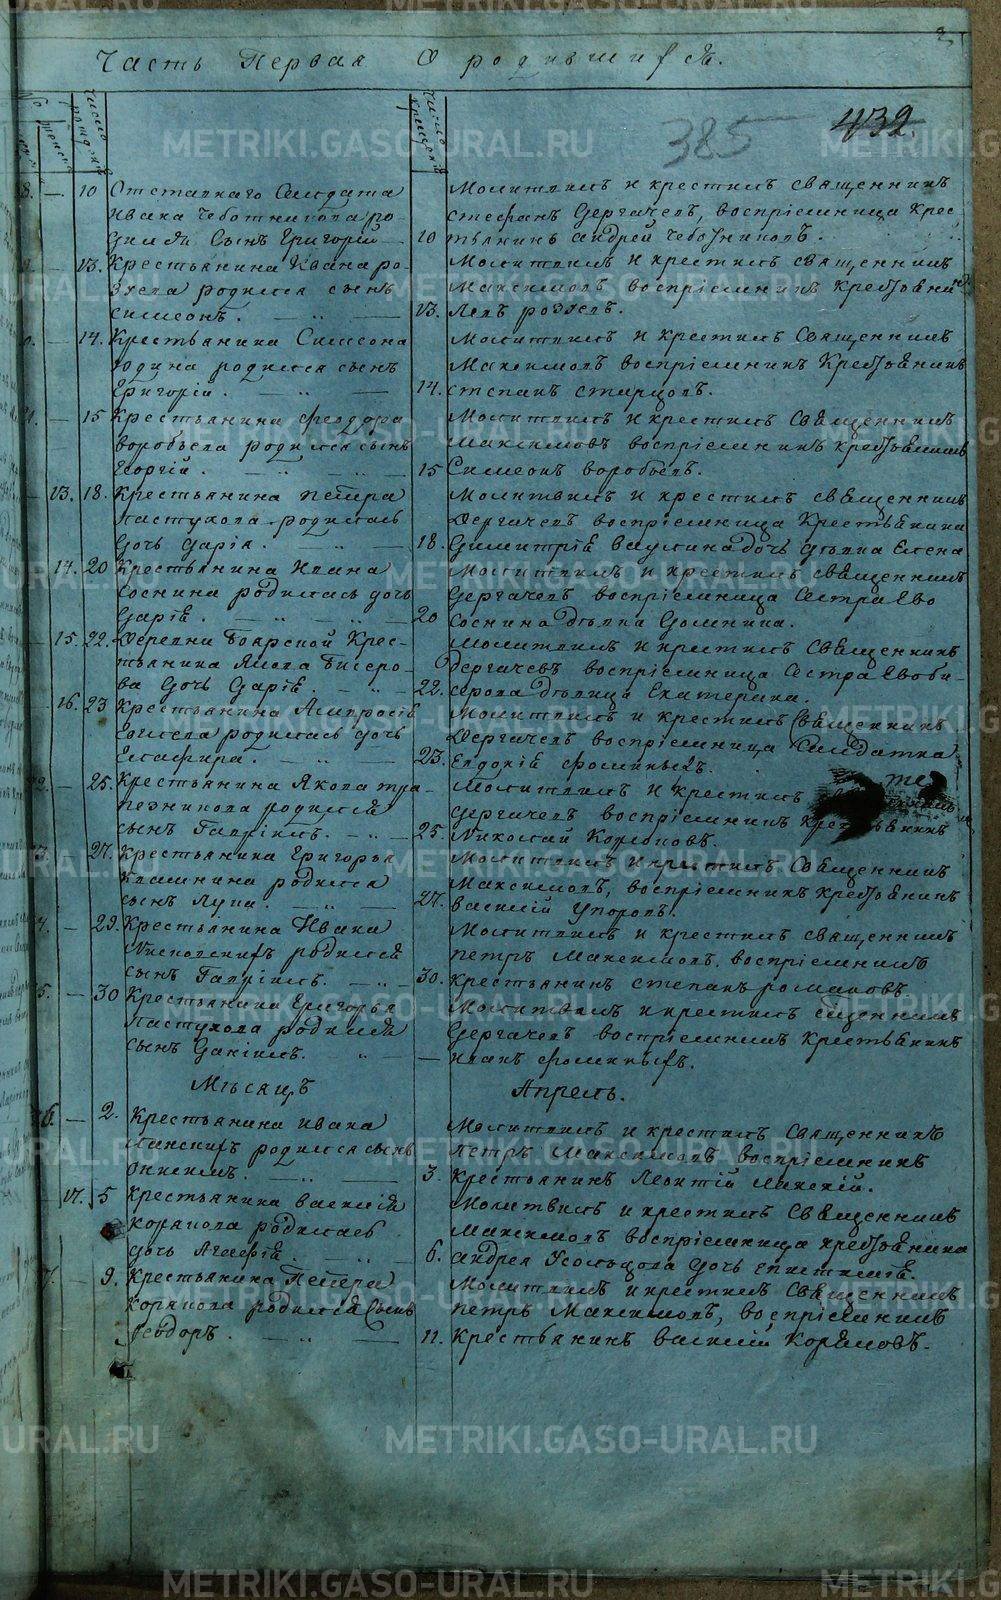 2
Часть Первая О родившихся.
число рожденія
число крещенія
385
432.
8. — 10 Отставнаго Солдата
Ивана Чеботникова ро-
дился Сынъ Григорій
Молитвилъ и крестилъ священникъ
стефанъ Дергачевъ, воспріемница крес
10 тьянинъ андрей Чеботниковъ.
— 13. Крестьянина Ивана ро-
родился сынъ
симеонъ.
Молитвилъ и крестилъ священникъ
Максимовъ воспріемникъ крестьянинъ
13. Левъ
— 14. Крестьянина Симеона
родился сынъ
Григорій.
Молитвилъ и крестилъ Священникъ
Максимовъ воспріемникъ Крестьянинъ
14. степанъ старцовъ.
— 15 Крестьянина феодора
воробьева родился сынъ
Георгій.
Молитвилъ и крестилъ Священникъ
Максимовъ воспріемникъ крестьянинъ
15 Симеонъ воробьевъ.
— 13. 18. Крестьянина петра
Пастухова родилась
дочь Дарія.
Молитвилъ и крестилъ священникъ
Дергачевъ воспріемница Крестьянина
18. Димитрія ваулина дочь дѣвка Елена
14. 20 Крестьянина Ивана
Соснина родилась дочь
Дарія.
Молитвилъ и крестилъ священникъ
Дергачевъ воспріемница Сестра Его
20 Соснина дѣвка Домника.
— 15. 22. Деревни Боярской Крес-
тьянина Якова Бисеро-
ва дочь Дарія.
Молитвилъ и крестилъ Священникъ
Дергачевъ воспріемница Сестра Евоби-
22. серова дѣвица Екатерина.
16. 23 Крестьянина Амвросія
родилась дочь
Гликерія.
Молитвилъ и крестилъ Священникъ
Дергачевъ воспріемница Солдатка
23. Евдокія фоминыхъ.
— 25. Крестьянина Якова тра-
пезникова родился
сынъ Гавріилъ.
Молитвилъ и крестилъ священникъ
Дергачевъ воспріемникъ крестьянинъ
25. Николай Коряковъ.
— 27. Крестьянина Григорья
Калинина родился
сынъ Лука.
Молитвилъ и крестилъ Священникъ
Максимовъ, воспріемникъ крестьянинъ
27. василій Упоровъ.
4. — 29. Крестьянина Ивана
родился
сынъ Гавріилъ.
Молитвилъ и крестилъ священникъ
петръ Максимовъ. воспріемникъ
30. Крестьянинъ степанъ романовъ
5. — 30 Крестьянина Григорья
Пастухова родился
сынъ Даніилъ.
Молитвилъ и крестилъ сщенникъ
Дергачевъ воспріемникъ Крестьянинъ
— Иванъ фоминыхъ.
Мѣсяцъ Апрель.
6. — 2. Крестьянина ивана
Ланскихъ родился сынъ
Молитвилъ и крестилъ Священникъ
Петръ Максимовъ воспріемникъ
3. Крестьянинъ Леонтій Ланскій.
— 17. 5 Крестьянина василія
Корякова родилась
дочь Агафія.
Молитвилъ и крестилъ Священникъ
Максимовъ воспріемница крестьянина
6. андрея Усольцова дочь епистимія.
7. — 9. Крестьянина Петра
Корякова родился Сынъ
Ѳеодоръ.
Молитвилъ и крестилъ Священникъ
петръ Максимовъ, воспріемникъ
11. Крестьянинъ василій Коряковъ.
METRIKI.GASO-URAL.RU